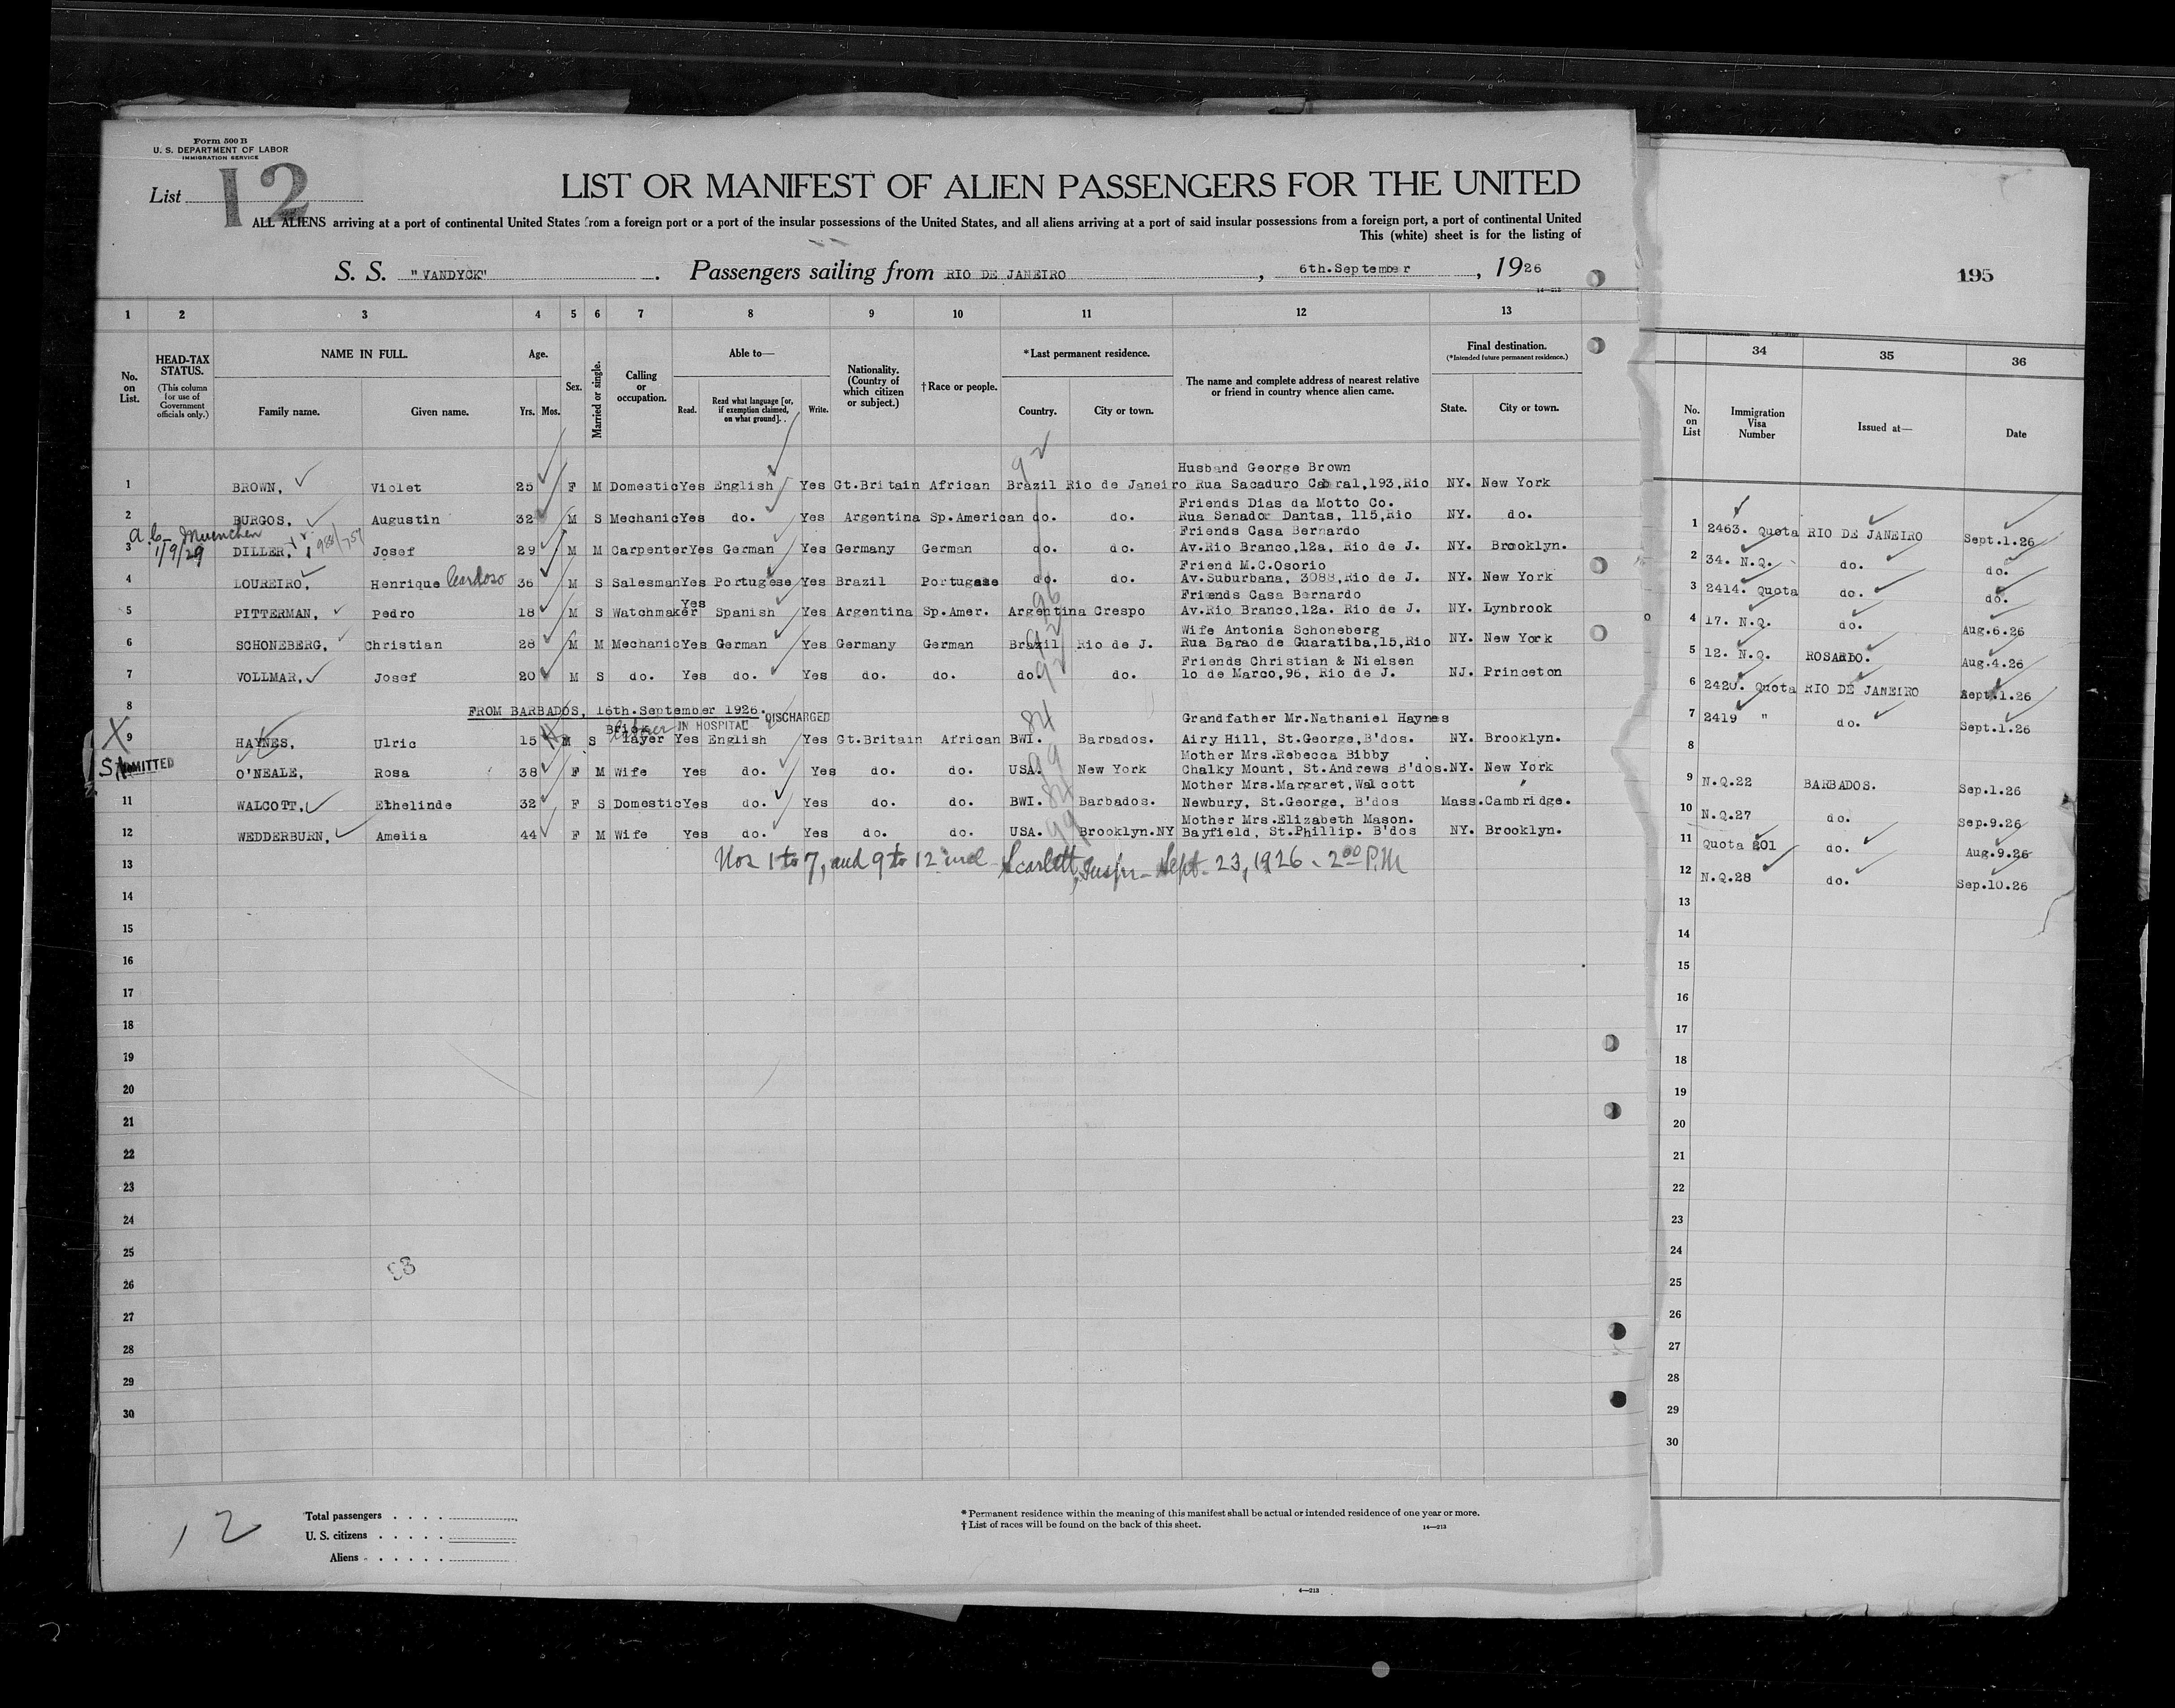 Form 500 B
U. S. DEPARTMENT OF LABOR
IMMIGRATION SERVICE
List 12
LIST OR MANIFEST OF ALIEN PASSENGERS FOR THE UNITED
ALL ALIENS arriving at a port of continental United States from a foreign port or a port of the insular possessions of the United States, and all aliens arriving at a port of said insular possessions from a foreign port, a port of continental United
This (white) sheet is for the listing of
S. S. "VANDYCK". Passengers sailing from RIO DE JANEIRO, 6th.September, 1926
14—213
195
1 2 3 4 5 6 7 8 9 10 11 12 13
No. on List.
HEAD-TAX STATUS.
(This column for use of Government officials only.)
NAME IN FULL.
Family name. Given name.
Age.
Yrs. Mos.
Sex.
Married or single.
Calling or occupation.
Able to—
Read. Read what language [or, if exemption claimed, on what ground]. Write.
Nationality. (Country of which citizen or subject.)
† Race or people.
*Last permanent residence.
Country. City or town.
The name and complete address of nearest relative or friend in country whence alien came.
Final destination.
(*Intended future permanent residence.)
State. City or town.
34 35 36
No. on List
Immigration Visa Number
Issued at—
Date
92
Husband George Brown
1 BROWN, Violet 25 F M Domestic Yes English Yes Gt.Britain African Brazil Rio de Janeiro Rua Sacaduro Cabral,193,Rio NY. New York
Friends Dias da Motto Co.
2 BURGOS, Augustin 32 M S Mechanic Yes do. Yes Argentina Sp.American do. do. Rua Senador Dantas, 115,Rio NY. do.
a.c. Muenchen
1/9/29
Friends Casa Bernardo
3 DILLER, Josef 29 M M Carpenter Yes German Yes Germany German do. do. Av.Rio Branco,12a, Rio de J. NY. Brooklyn.
Friend M.C.Osorio
4 LOUREIRO, Henrique Cardoso 36 M S Salesman Yes Portugese Yes Brazil Portugese do. do. Av.Suburbana, 3088,Rio de J. NY. New York
Friends Casa Bernardo
5 PITTERMAN, Pedro 18 M S Watchmaker Yes Spanish Yes Argentina Sp.Amer. Argentina Crespo Av.Rio Branco,12a. Rio de J. NY. Lynbrook
Wife Antonia Schoneberg
6 SCHONEBERG, Christian 28 M M Mechanic Yes German Yes Germany German Brazil Rio de J. Rua Barao de Guaratiba,15,Rio NY. New York
Friends Christian & Nielsen
7 VOLLMAR, Josef 20 M S do. Yes do. Yes do. do. do. do. 1o de Marco,96, Rio de J. NJ. Princeton
92
8 FROM BARBADOS, 16th.September 1926.
IN HOSPITAL DISCHARGED
84
Grandfather Mr.Nathaniel Haynes
X 9 HAYNES, Ulric 15 M S Brick layer Yes English Yes Gt.Britain African BWI. Barbados. Airy Hill, St.George,B'dos. NY. Brooklyn.
ADMITTED
Mother Mrs.Rebecca Bibby
O'NEALE, Rosa 38 F M Wife Yes do. Yes do. do. USA. New York Chalky Mount, St.Andrews B'dos. NY. New York
99
Mother Mrs.Margaret,Walcott
11 WALCOTT, Ethelinde 32 F S Domestic Yes do. Yes do. do. BWI. Barbados. Newbury, St.George, B'dos Mass. Cambridge.
84
Mother Mrs.Elizabeth Mason.
12 WEDDERBURN, Amelia 44 F M Wife Yes do. Yes do. do. USA. Brooklyn.NY Bayfield, St.Phillip. B'dos NY. Brooklyn.
99
13 Nos 1 to 7, and 9 to 12 incl Scarlett, Inspr- Sept. 23, 1926 - 2 00 P.M
14
15
16
17
18
19
20
21
22
23
24
25
26
27
28
29
30
1 2463. Quota RIO DE JANEIRO Sept.1.26
2 34. N.Q. do. do.
3 2414. Quota do. do.
4 17. N.Q. do. Aug.6.26
5 12. N.Q. ROSARIO. Aug.4.26
6 2420. Quota RIO DE JANEIRO Sept.1.26
7 2419 " do. Sept.1.26
8
9 N.Q.22 BARBADOS. Sep.1.26
10 N.Q.27 do. Sep.9.26
11 Quota 201 do. Aug.9.26
12 N.Q.28 do. Sep.10.26
13
14
15
16
17
18
19
20
21
22
23
24
25
26
27
28
29
30
12
Total passengers
U. S. citizens
Aliens
* Permanent residence within the meaning of this manifest shall be actual or intended residence of one year or more.
† List of races will be found on the back of this sheet.
14—213
4—213